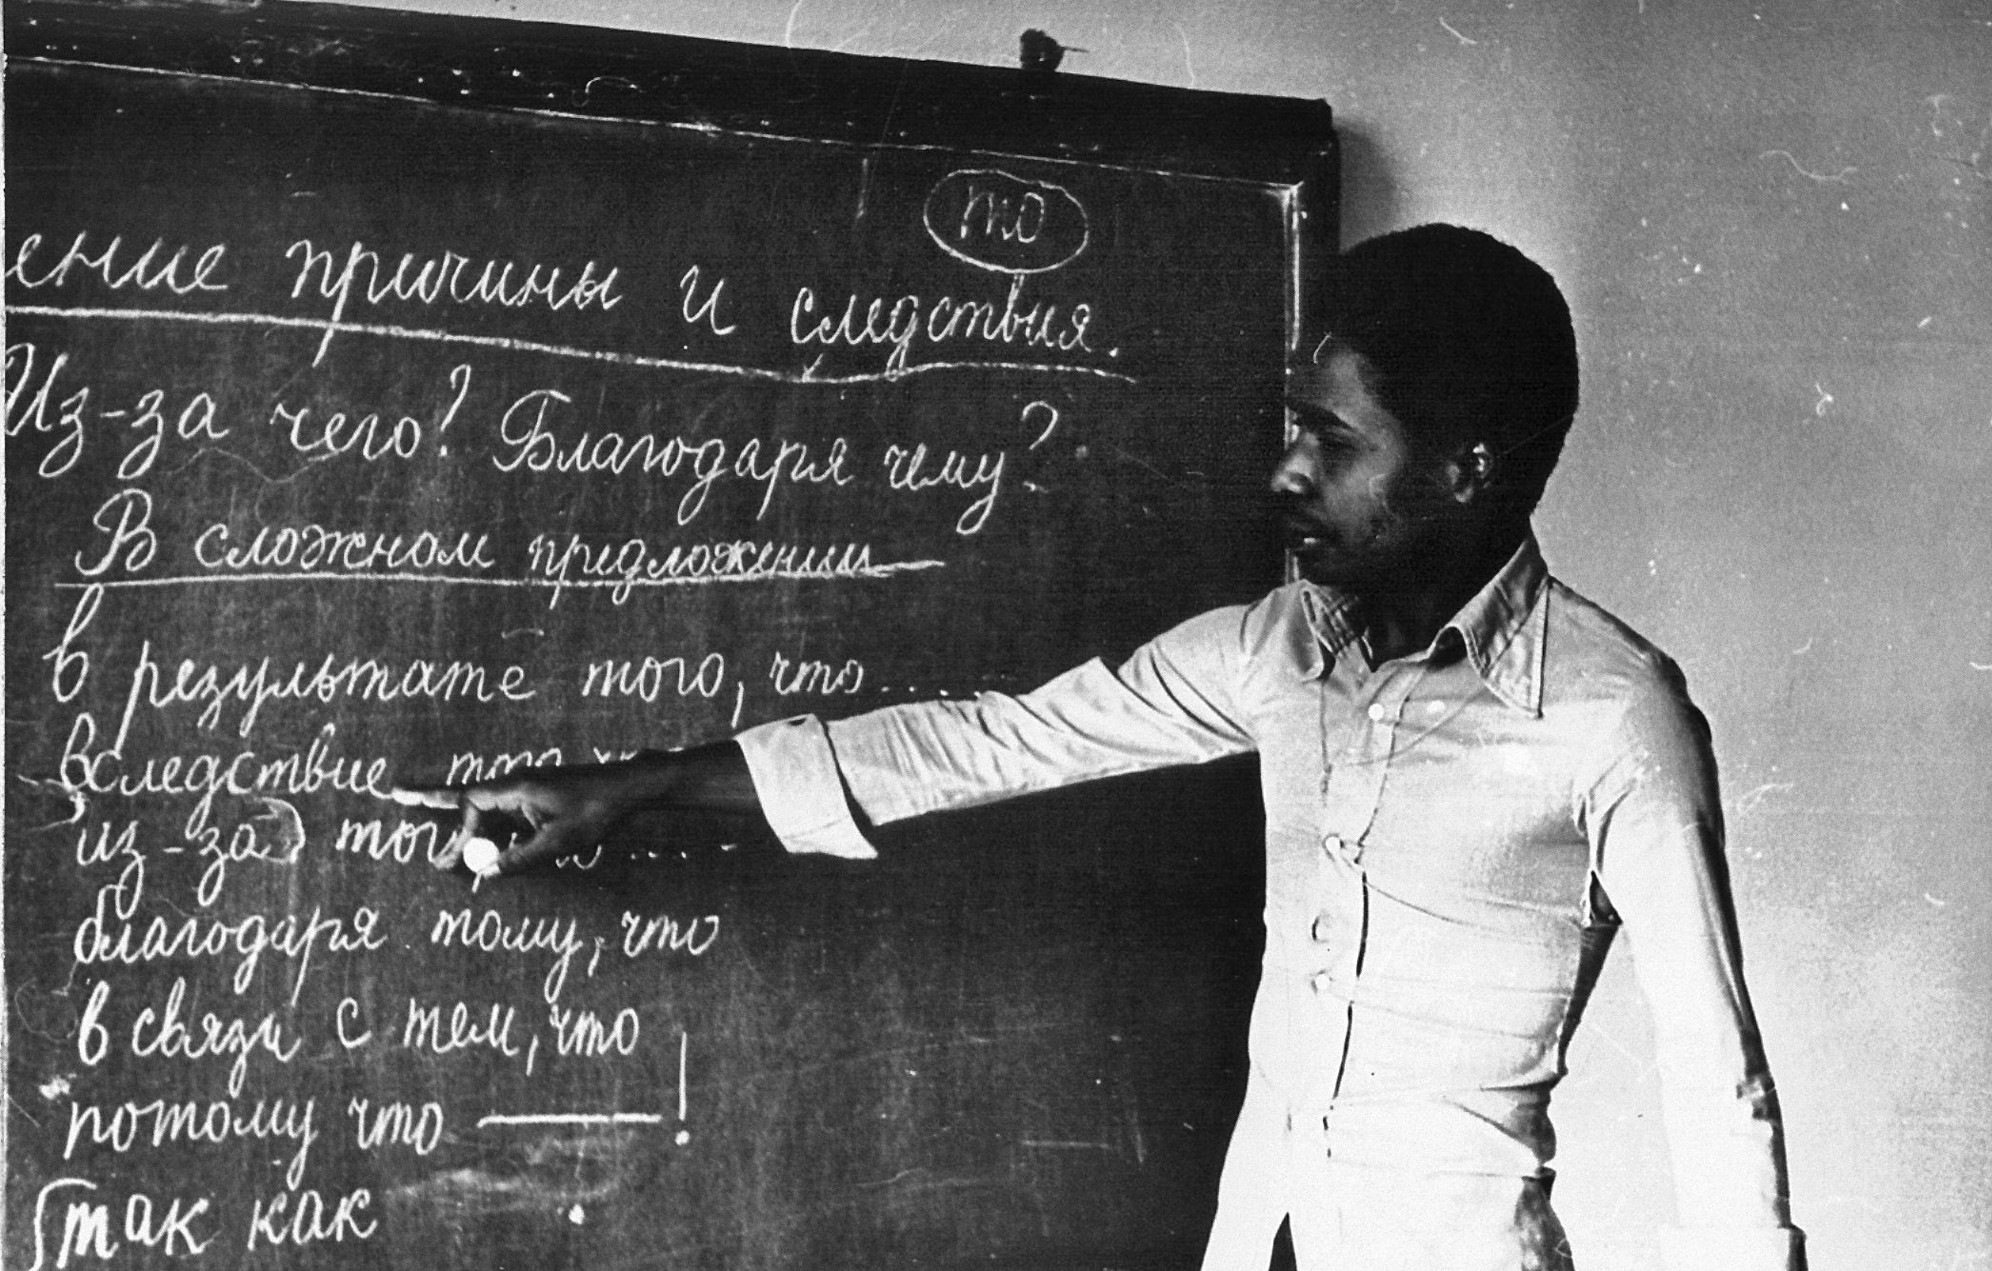 то
ение причины и следствия.
Из-за чего? Благодаря чему?
В сложном предложении
в результате того, что.....
вследствие
из-за того, что....
благодаря тому, что
в связи с тем, что
потому что — !
так как